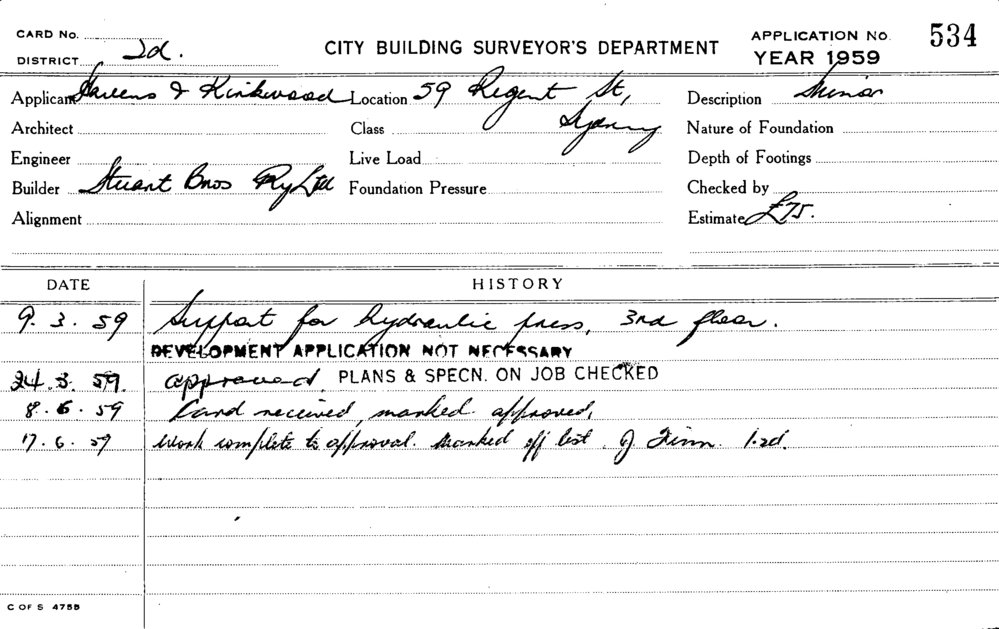 CARD No.
DISTRICT 2d.
CITY BUILDING SURVEYOR'S DEPARTMENT
APPLICATION No. 534
YEAR 1959
Applicant & Kirkwood Location 59 Regent St, Sydney Description Minor
Architect Class Nature of Foundation
Engineer Live Load Depth of Footings
Builder Stuart Bros Pty Ltd Foundation Pressure Checked by
Alignment Estimate £75.
DATE HISTORY
9. 3. 59 Support for hydraulic press, 3rd floor.
DEVELOPMENT APPLICATION NOT NECESSARY
24. 3. 59. approved. PLANS & SPECN. ON JOB CHECKED
8. 6. 59 Card received, marked approved,
17. 6. 59 Work complete to approval. Marked off list. J. Finn
C OF S 475B